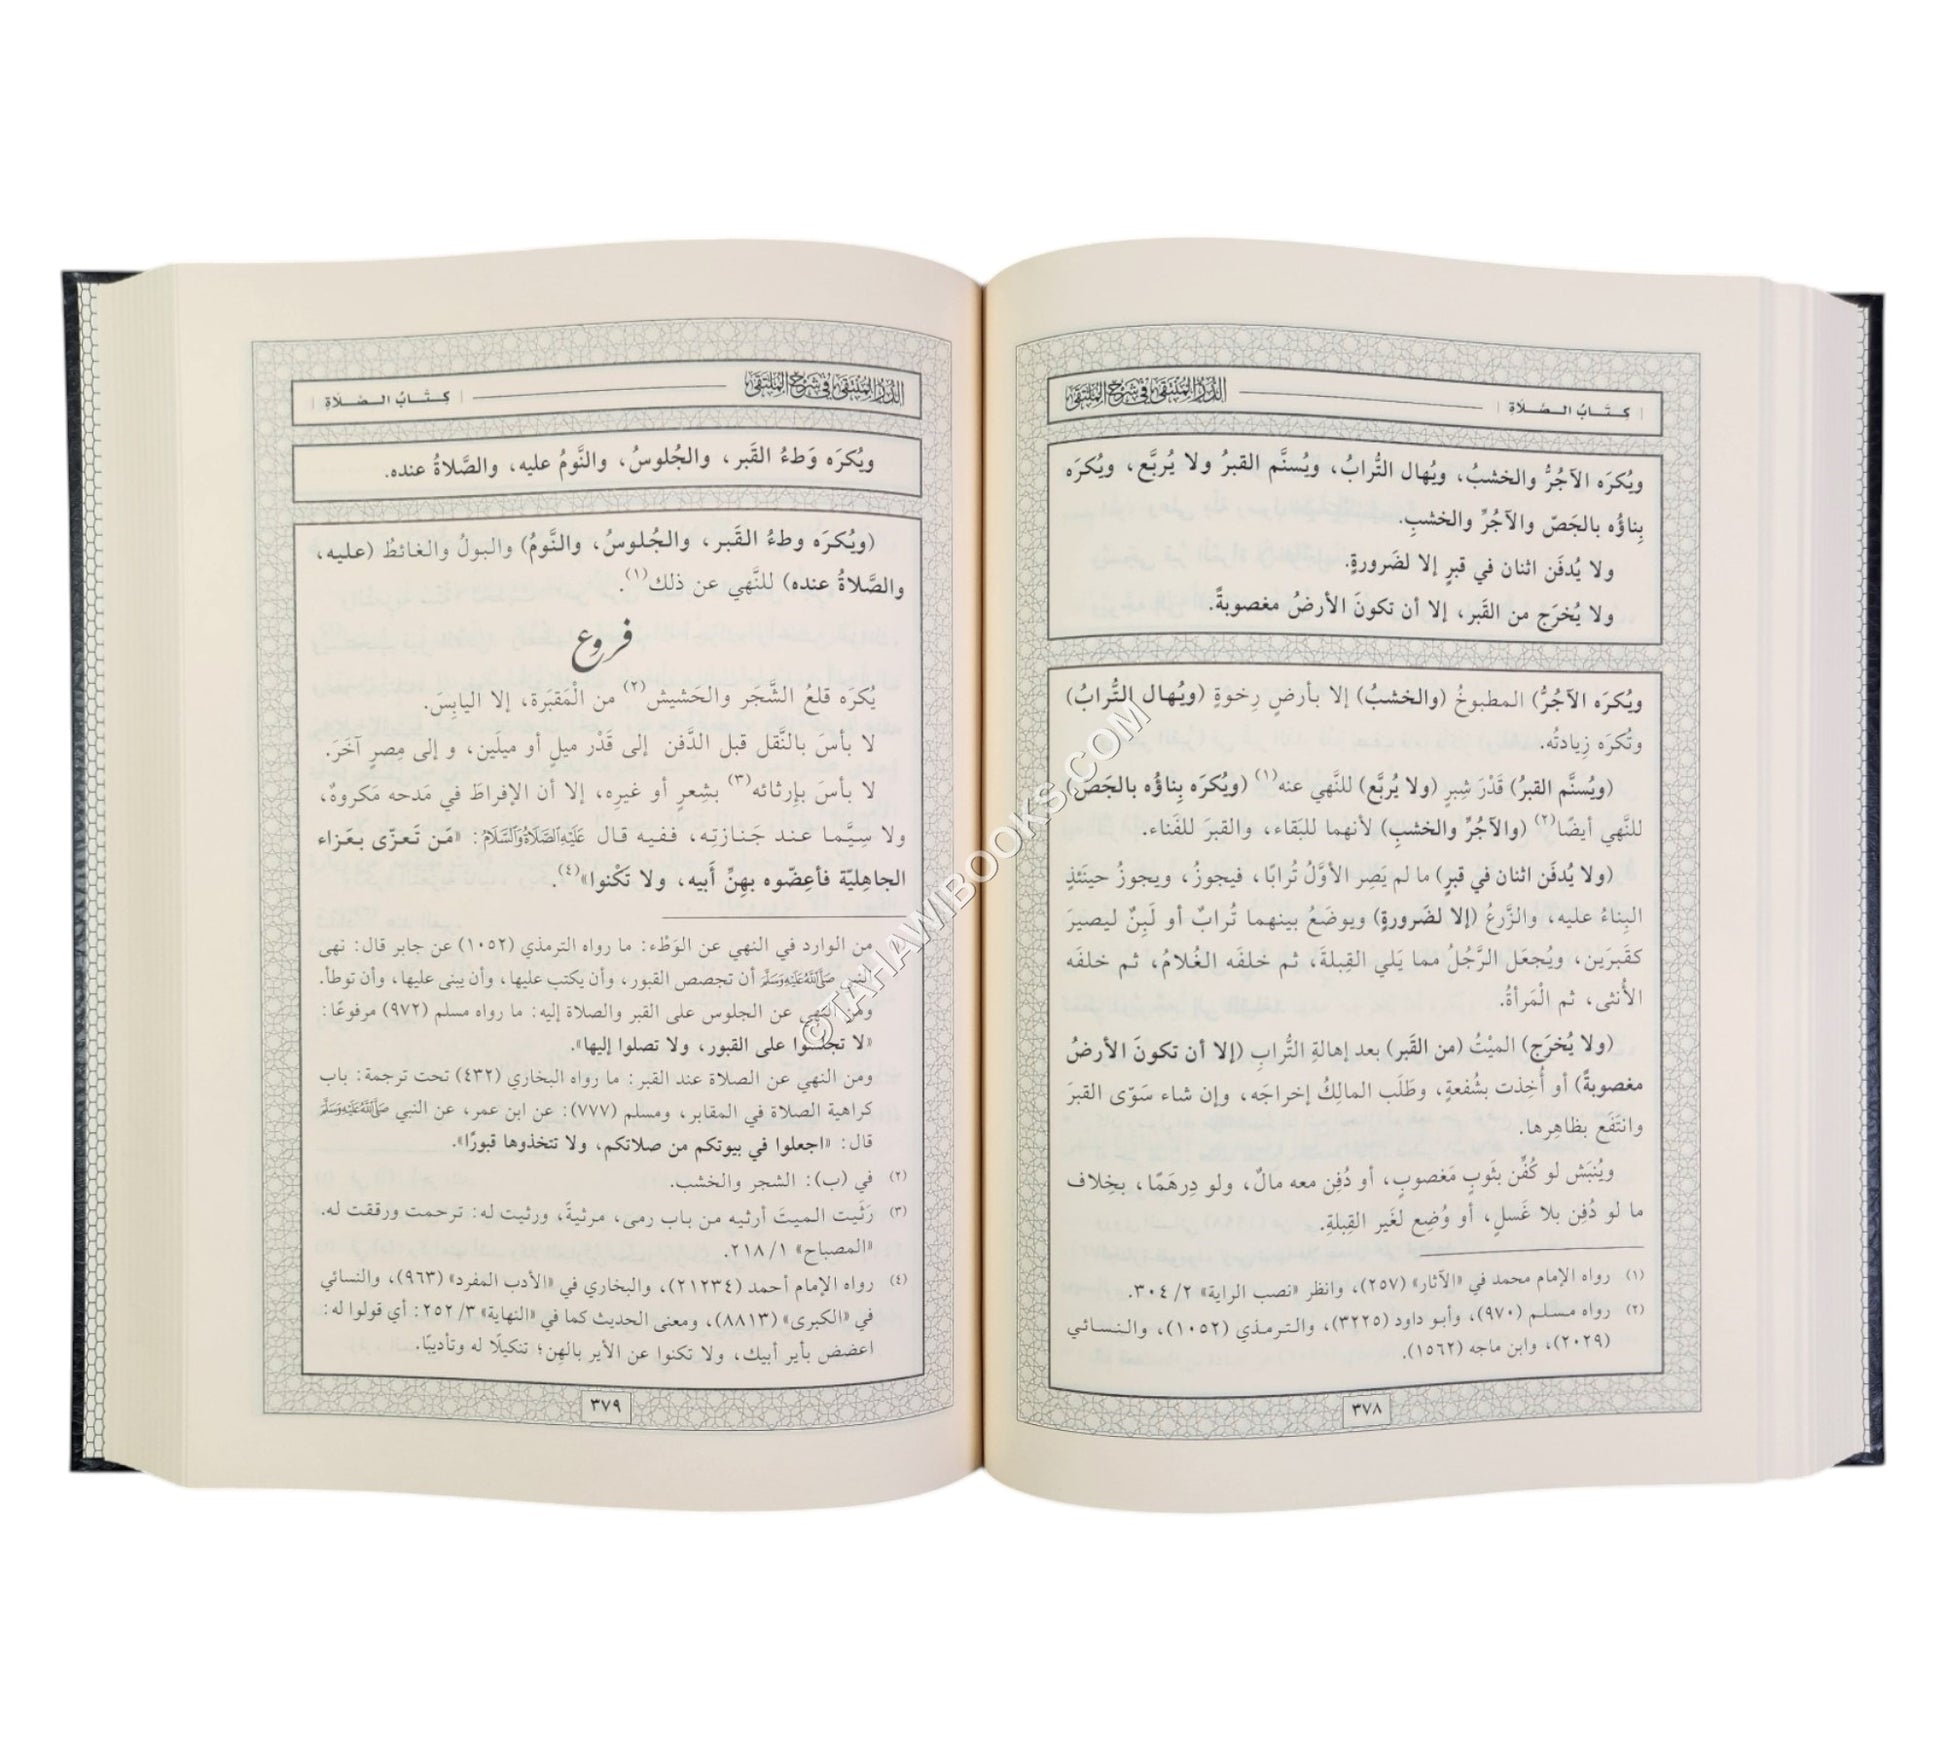 كِتَابُ الـصَّـلَاةِ
الدُّرُّ المُنْتَقَى فِي شَرْحِ المُلْتَقَى
ويُكرَه الآجُرُّ والخشبُ، ويُهال التُّرابُ، ويُسنَّم القبرُ ولا يُربَّع، ويُكرَه
بِناؤُه بالجَصّ والآجُرِّ والخشبِ.
ولا يُدفَن اثنان في قبرٍ إلا لضَرورةٍ.
ولا يُخرَج من القَبر، إلا أن تكونَ الأرضُ مغصوبةً.
ويُكرَه الآجُرُّ) المطبوخُ (والخشبُ) إلا بأرضٍ رِخوةٍ (ويُهال التُّرابُ)
وتُكرَه زِيادتُه.
(ويُسنَّم القبرُ) قَدْرَ شِبرٍ (ولا يُربَّع) للنَّهي عنه(١) (ويُكرَه بِناؤُه بالجَصّ)
للنَّهي أيضًا(٢) (والآجُرِّ والخشبِ) لأنهما للبَقاء، والقبرَ للفَناء.
(ولا يُدفَن اثنان في قبرٍ) ما لم يَصِر الأوَّلُ تُرابًا، فيجوزُ، ويجوزُ حينَئذٍ
البِناءُ عليه، والزَّرعُ (إلا لضَرورةٍ) ويوضَعُ بينهما تُرابٌ أو لَبِنٌ ليصيرَ
كقَبرَين، ويُجعَل الرَّجُلُ مما يَلي القِبلةَ، ثم خلفَه الغُلامُ، ثم خلفَه
الأُنثى، ثم الْمَرأةُ.
(ولا يُخرَج) الميْتُ (من القَبر) بعد إهالةِ التُّرابِ (إلا أن تكونَ الأرضُ
مغصوبةً) أو أُخِذت بشُفعةٍ، وطَلَب المالِكُ إخراجَه، وإن شاء سَوّى القبرَ
وانتَفَع بظاهِرِها.
ويُنبَش لو كُفِّن بثَوبٍ مَغصوبٍ، أو دُفِن معه مالٌ، ولو دِرهَمًا، بخِلاف
ما لو دُفِن بلا غَسلٍ، أو وُضِع لغَير القِبلةِ.
(١) رواه الإمام محمد في «الآثار» (٢٥٧)، وانظر «نصب الراية» ٢/ ٣٠٤.
(٢) رواه مسلم (٩٧٠)، وأبو داود (٣٢٢٥)، والترمذي (١٠٥٢)، والنسائي
(٢٠٢٩)، وابن ماجه (١٥٦٢).
٣٧٨
الدُّرُّ المُنْتَقَى فِي شَرْحِ المُلْتَقَى
كِتَابُ الـصَّـلَاةِ
ويُكرَه وَطءُ القَبر، والجُلوسُ، والنَّومُ عليه، والصَّلاةُ عنده.
(ويُكرَه وطءُ القَبر، والجُلوسُ، والنَّومُ) والبولُ والغائطُ (عليه،
والصَّلاةُ عنده) للنَّهي عن ذلك(١).
فروع
يُكرَه قلعُ الشَّجَر والحَشيش(٢) من الْمَقبَرة، إلا اليابِسَ.
لا بأسَ بالنَّقل قبل الدَّفن إلى قَدْر ميلٍ أو ميلَين، و إلى مِصرٍ آخَرَ.
لا بأسَ بإرثائه(٣) بشِعرٍ أو غيرِه، إلا أن الإفراطَ في مَدحه مَكروهٌ،
ولا سِيَّما عند جَنازتِه، ففيه قال عَلَيْهِ الصَّلَاةُ وَالسَّلَامُ: «مَن تَعزّى بعَزاء
الجاهِليّة فأعِضّوه بهِنِّ أَبيه، ولا تَكْنوا»(٤).
من الوارد في النهي عن الوَطْء: ما رواه الترمذي (١٠٥٢) عن جابر قال: نهى
النبي صَلَّى اللَّهُ عَلَيْهِ وَسَلَّمَ أن تجصص القبور، وأن يكتب عليها، وأن يبنى عليها، وأن توطأ.
ومن النهي عن الجلوس على القبر والصلاة إليه: ما رواه مسلم (٩٧٢) مرفوعًا:
«لا تجلسوا على القبور، ولا تصلوا إليها».
ومن النهي عن الصلاة عند القبر: ما رواه البخاري (٤٣٢) تحت ترجمة: باب
كراهية الصلاة في المقابر، ومسلم (٧٧٧): عن ابن عمر، عن النبي صَلَّى اللَّهُ عَلَيْهِ وَسَلَّمَ
قال: «اجعلوا في بيوتكم من صلاتكم، ولا تتخذوها قبورًا».
(٢) في (ب): الشجر والخشب.
(٣) رَثَيت الميتَ أرثيه من باب رمى، مرثيةً، ورثيت له: ترحمت ورققت له.
«المصباح» ١/ ٢١٨.
(٤) رواه الإمام أحمد (٢١٢٣٤)، والبخاري في «الأدب المفرد» (٩٦٣)، والنسائي
في «الكبرى» (٨٨١٣)، ومعنى الحديث كما في «النهاية» ٣/ ٢٥٢: أي قولوا له:
اعضض بأير أبيك، ولا تكنوا عن الأير بالهن؛ تنكيلًا له وتأديبًا.
٣٧٩
©TAHAWIBOOKS.COM